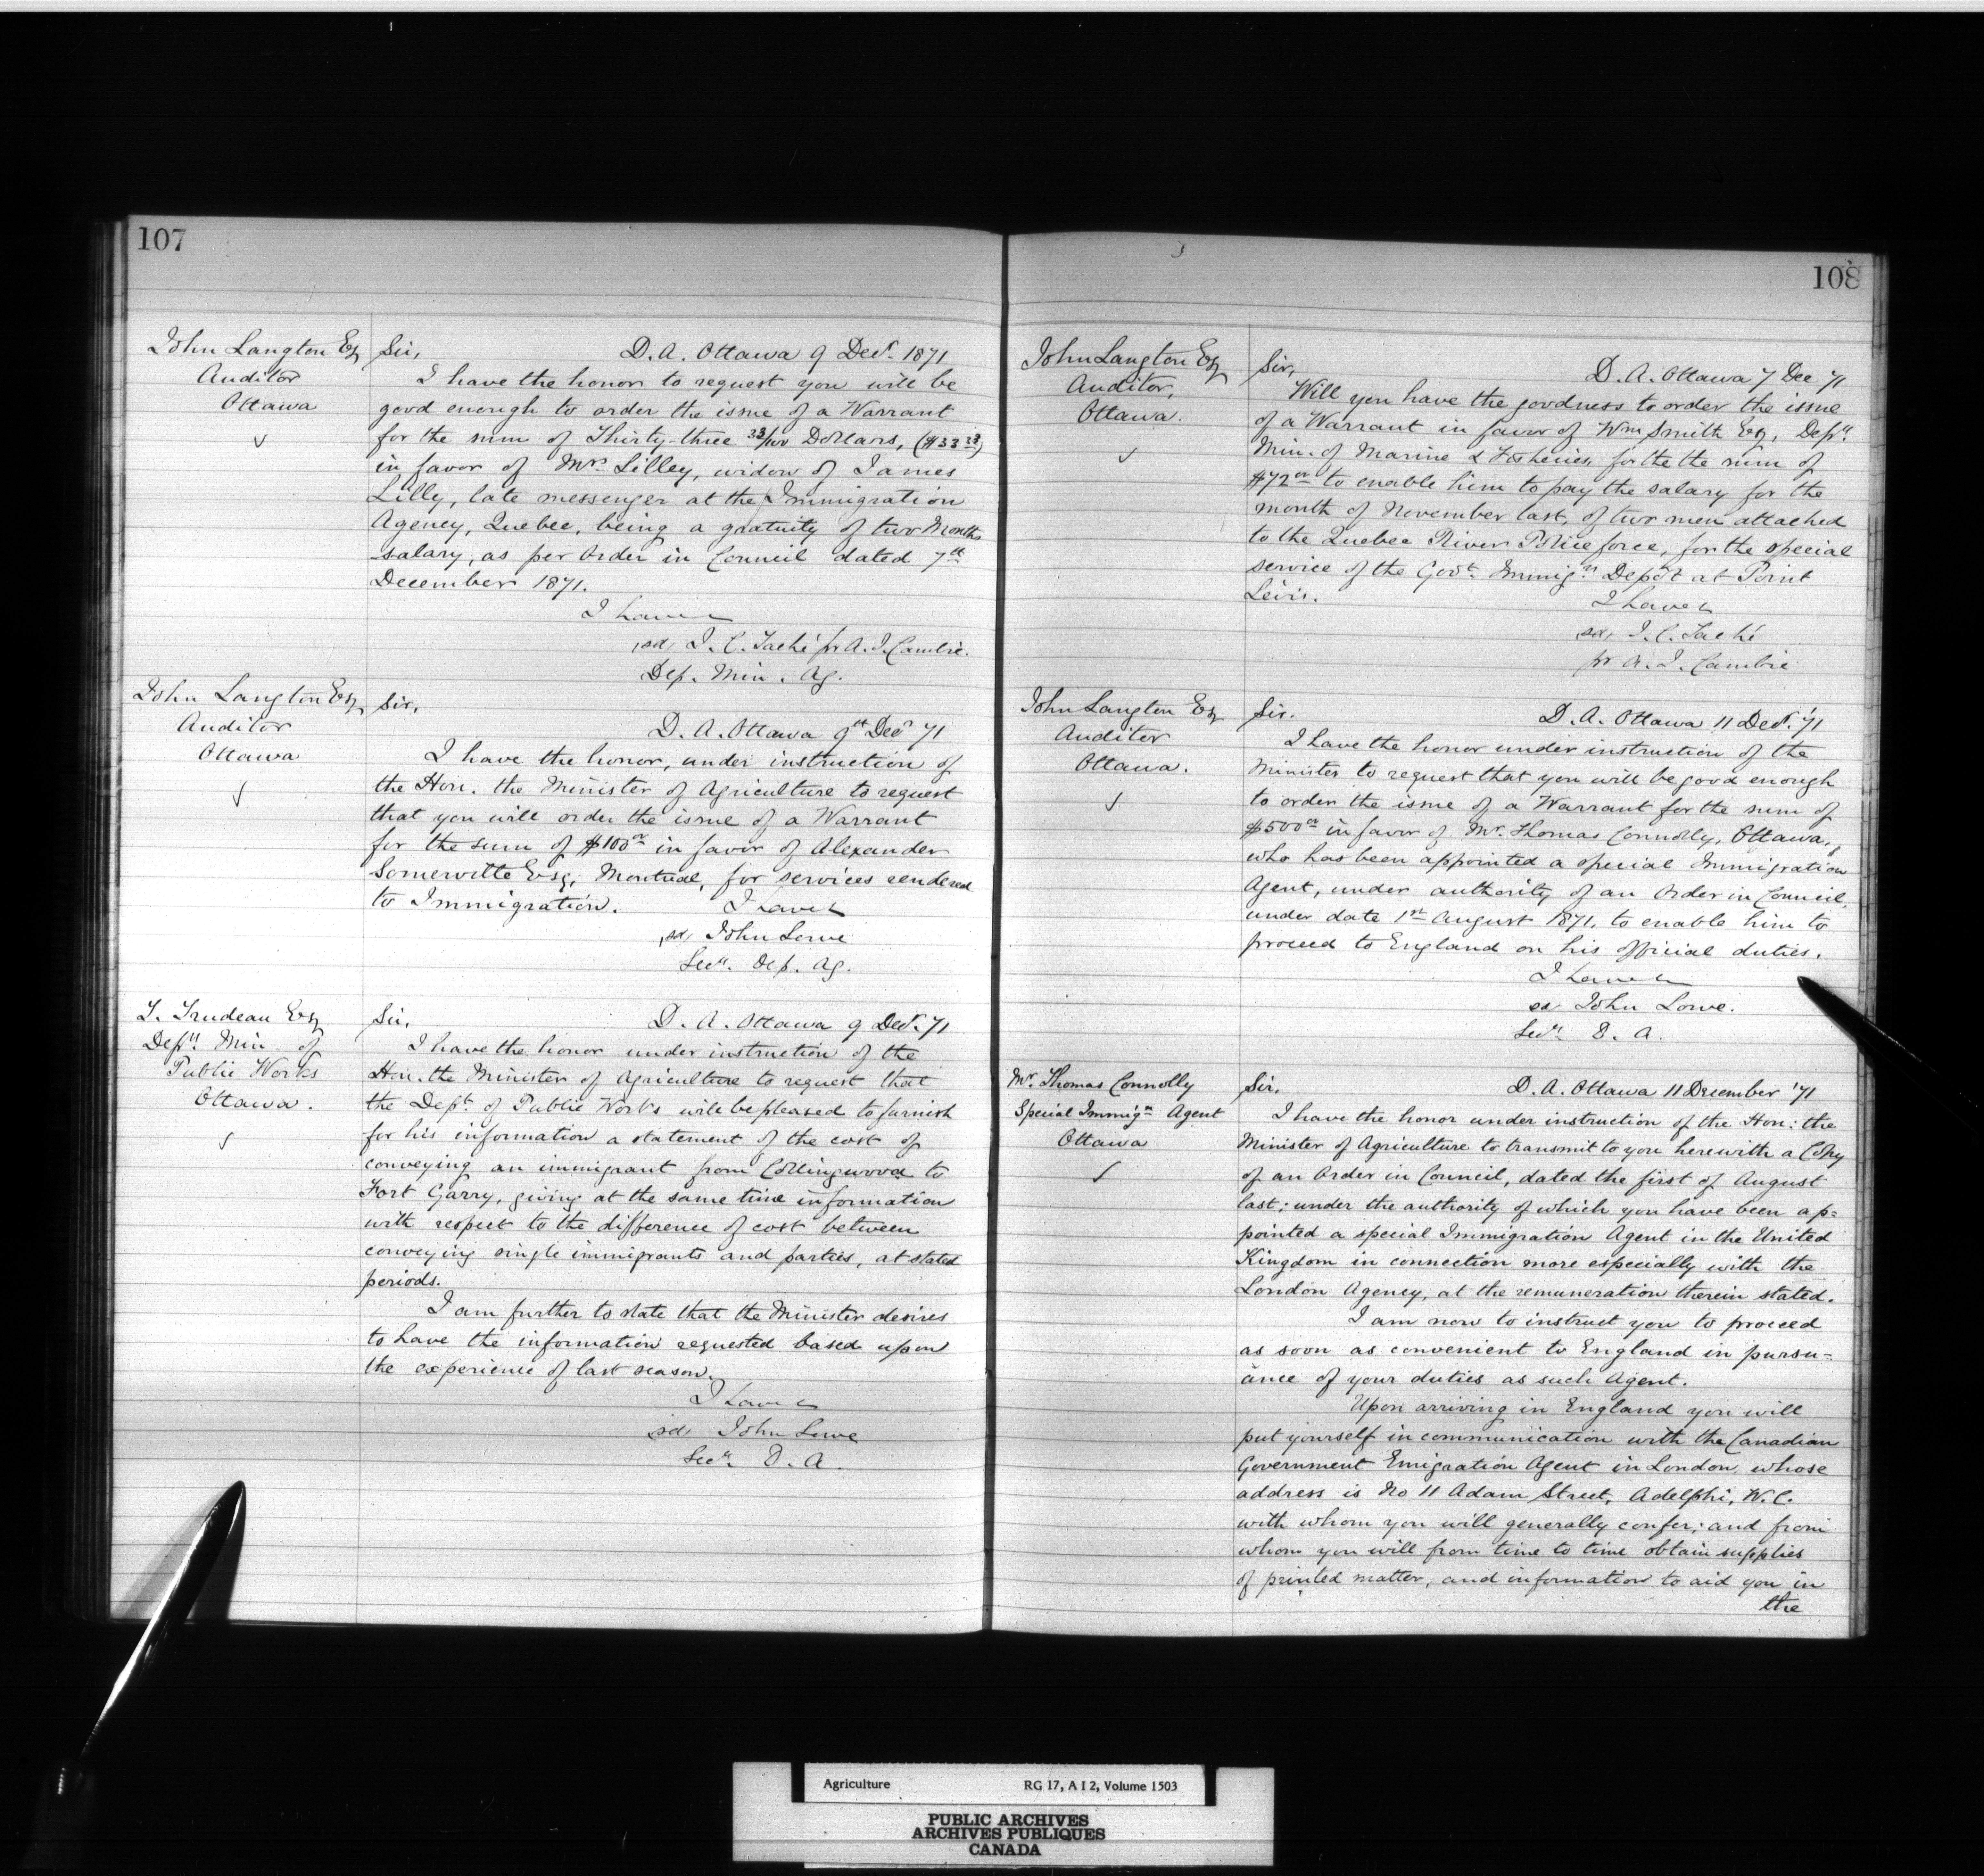 107
John Langton Esq
Auditor
Ottawa
Sir,
D. A. Ottawa 9 Decr. 1871
I have the honor to request you will be
good enough to order the issue of a Warrant
for the sum of Thirty-three 33/100 Dollars, ($33 33)
in favor of Mrs Lilley, widow of James
Lilly, late messenger at the Immigration
Agency, Quebec, being a gratuity of two Months
salary, as per Order in Council dated 7th
December 1871.
I have
sd, J. C. Taché pr A. J. Cambie.
Dep. Min. Ag.
John Langton Esq
Auditor
Ottawa
Sir,
D. A. Ottawa 9th Decr 71
I have the honor, under instruction of
the Hon. the Minister of Agriculture to request
that you will order the issue of a Warrant
for the sum of $100 00 in favor of Alexander
Somerville Esq, Montreal, for services rendered
to Immigration.
I have
sd, John Lowe
Secy. Dep. Ag.
T. Trudeau Esq
Depy. Min. of
Public Works
Ottawa.
Sir,
D. A. Ottawa 9 Decr. 71
I have the honor under instruction of the
Hon. the Minister of Agriculture to request that
the Dept. of Public Works will be pleased to furnish
for his information a statement of the cost of
conveying an immigrant from Collingwood to
Fort Garry, giving at the same time information
with respect to the difference of cost between
conveying single immigrants and parties, at stated
periods.
I am further to state that the Minister desires
to have the information requested based upon
the experience of last season.
I have
sd, John Lowe
Secy. D. A.
108
John Langton Esq
Auditor,
Ottawa.
Sir,
D. A. Ottawa 7 Dec 71
Will you have the goodness to order the issue
of a Warrant in favor of Wm Smith Esq, Depy.
Min. of Marine & Fisheries, for the the sum of
$72 00 to enable him to pay the salary for the
month of November last, of two men attached
to the Quebec River Police force, for the special
service of the Govt. Immign. Depôt at Point
Levis.
I have
sd, J. C. Taché
pr A. J. Cambie
John Langton Esq
Auditor
Ottawa.
Sir.
D. A. Ottawa 11 Decr. '71
I have the honor under instruction of the
Minister to request that you will be good enough
to order the issue of a Warrant for the sum of
$500 00 in favor of Mr. Thomas Connolly, Ottawa,
who has been appointed a special Immigration
Agent, under authority of an Order in Council,
under date 1st August 1871, to enable him to
proceed to England on his official duties.
I have
sd John Lowe.
Secy. D. A.
Mr. Thomas Connolly
Special Immign. Agent
Ottawa
Sir,
D. A. Ottawa 11 December '71
I have the honor under instruction of the Hon: the
Minister of Agriculture to transmit to you herewith a Copy
of an Order in Council, dated the first of August
last; under the authority of which you have been ap=
pointed a special Immigration Agent in the United
Kingdom in connection more especially with the
London Agency, at the remuneration therein stated.
I am now to instruct you to proceed
as soon as convenient to England in pursu=
ance of your duties as such Agent.
Upon arriving in England you will
put yourself in communication with the Canadian
Government Emigration Agent in London, whose
address is No 11 Adam Street, Adelphi, W.C.
with whom you will generally confer; and from
whom you will from time to time obtain supplies
of printed matter, and information to aid you in
the
Agriculture RG 17, A I 2, Volume 1503
PUBLIC ARCHIVES
ARCHIVES PUBLIQUES
CANADA